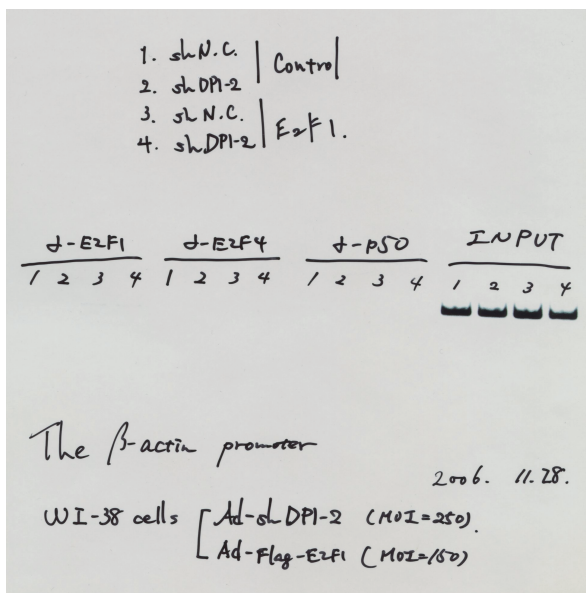 1. sh N.C.
2. sh DP1-2
Control
3. sh N.C.
4. sh DP1-2
E2F1.
α-E2F1 α-E2F4 α-p50 INPUT
1 2 3 4 1 2 3 4 1 2 3 4 1 2 3 4
The β-actin promoter
2006. 11.28.
WI-38 cells Ad-sh DP1-2 (MOI=250).
Ad-Flag-E2F1 (MOI=150)